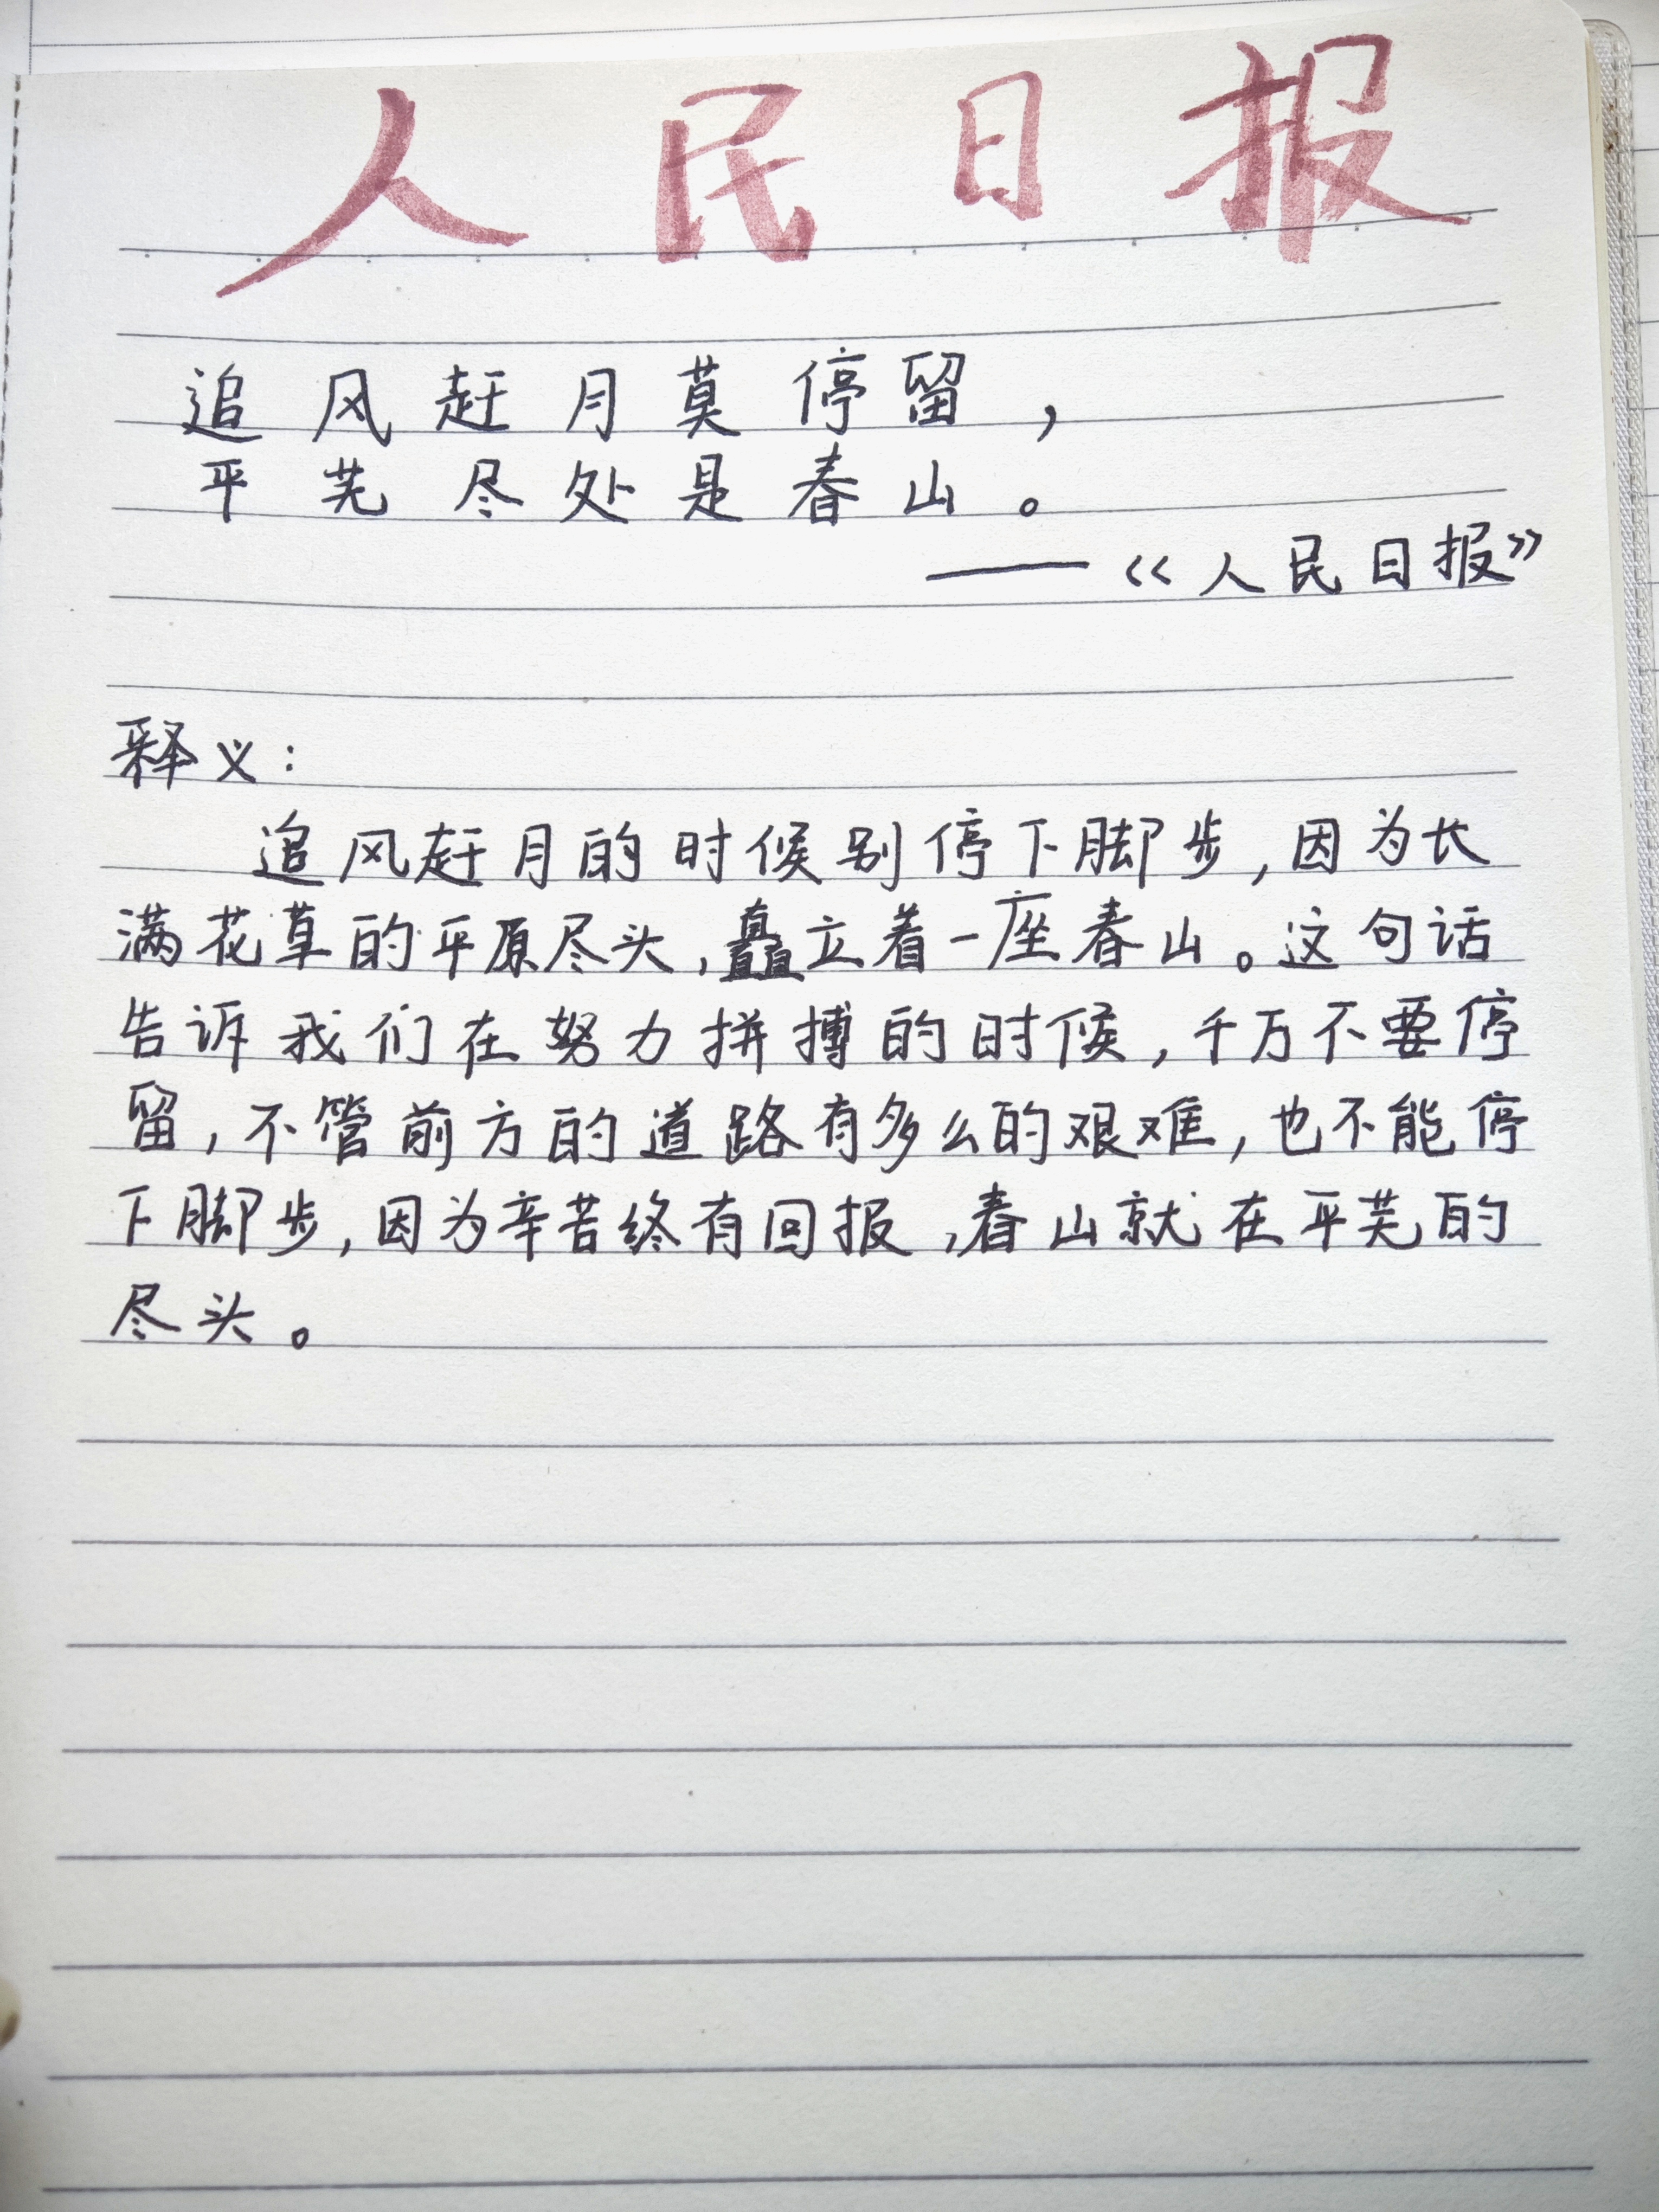 人民日报
追风赶月莫停留，
平芜尽处是春山。
——《人民日报》
释义：
追风赶月的时候别停下脚步，因为长
满花草的平原尽头，矗立着一座春山。这句话
告诉我们在努力拼搏的时候，千万不要停
留，不管前方的道路有多么的艰难，也不能停
下脚步，因为辛苦终有回报，春山就在平芜的
尽头。